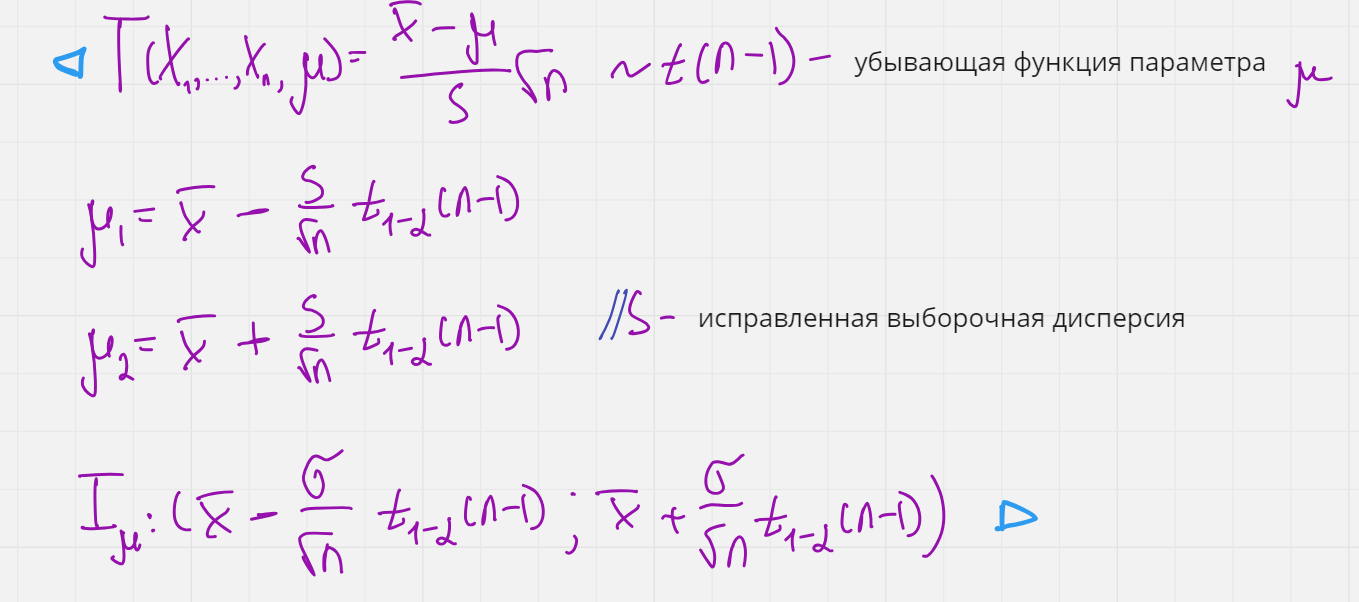 T(X₁,...,Xₙ, μ) = (x̄ − μ)/S √n ~ t(n−1) − убывающая функция параметра μ
μ₁ = x̄ − S/√n t₁₋α(n−1)
μ₂ = x̄ + S/√n t₁₋α(n−1) // S − исправленная выборочная дисперсия
I_μ: (x̄ − σ/√n t₁₋α(n−1); x̄ + σ/√n t₁₋α(n−1))